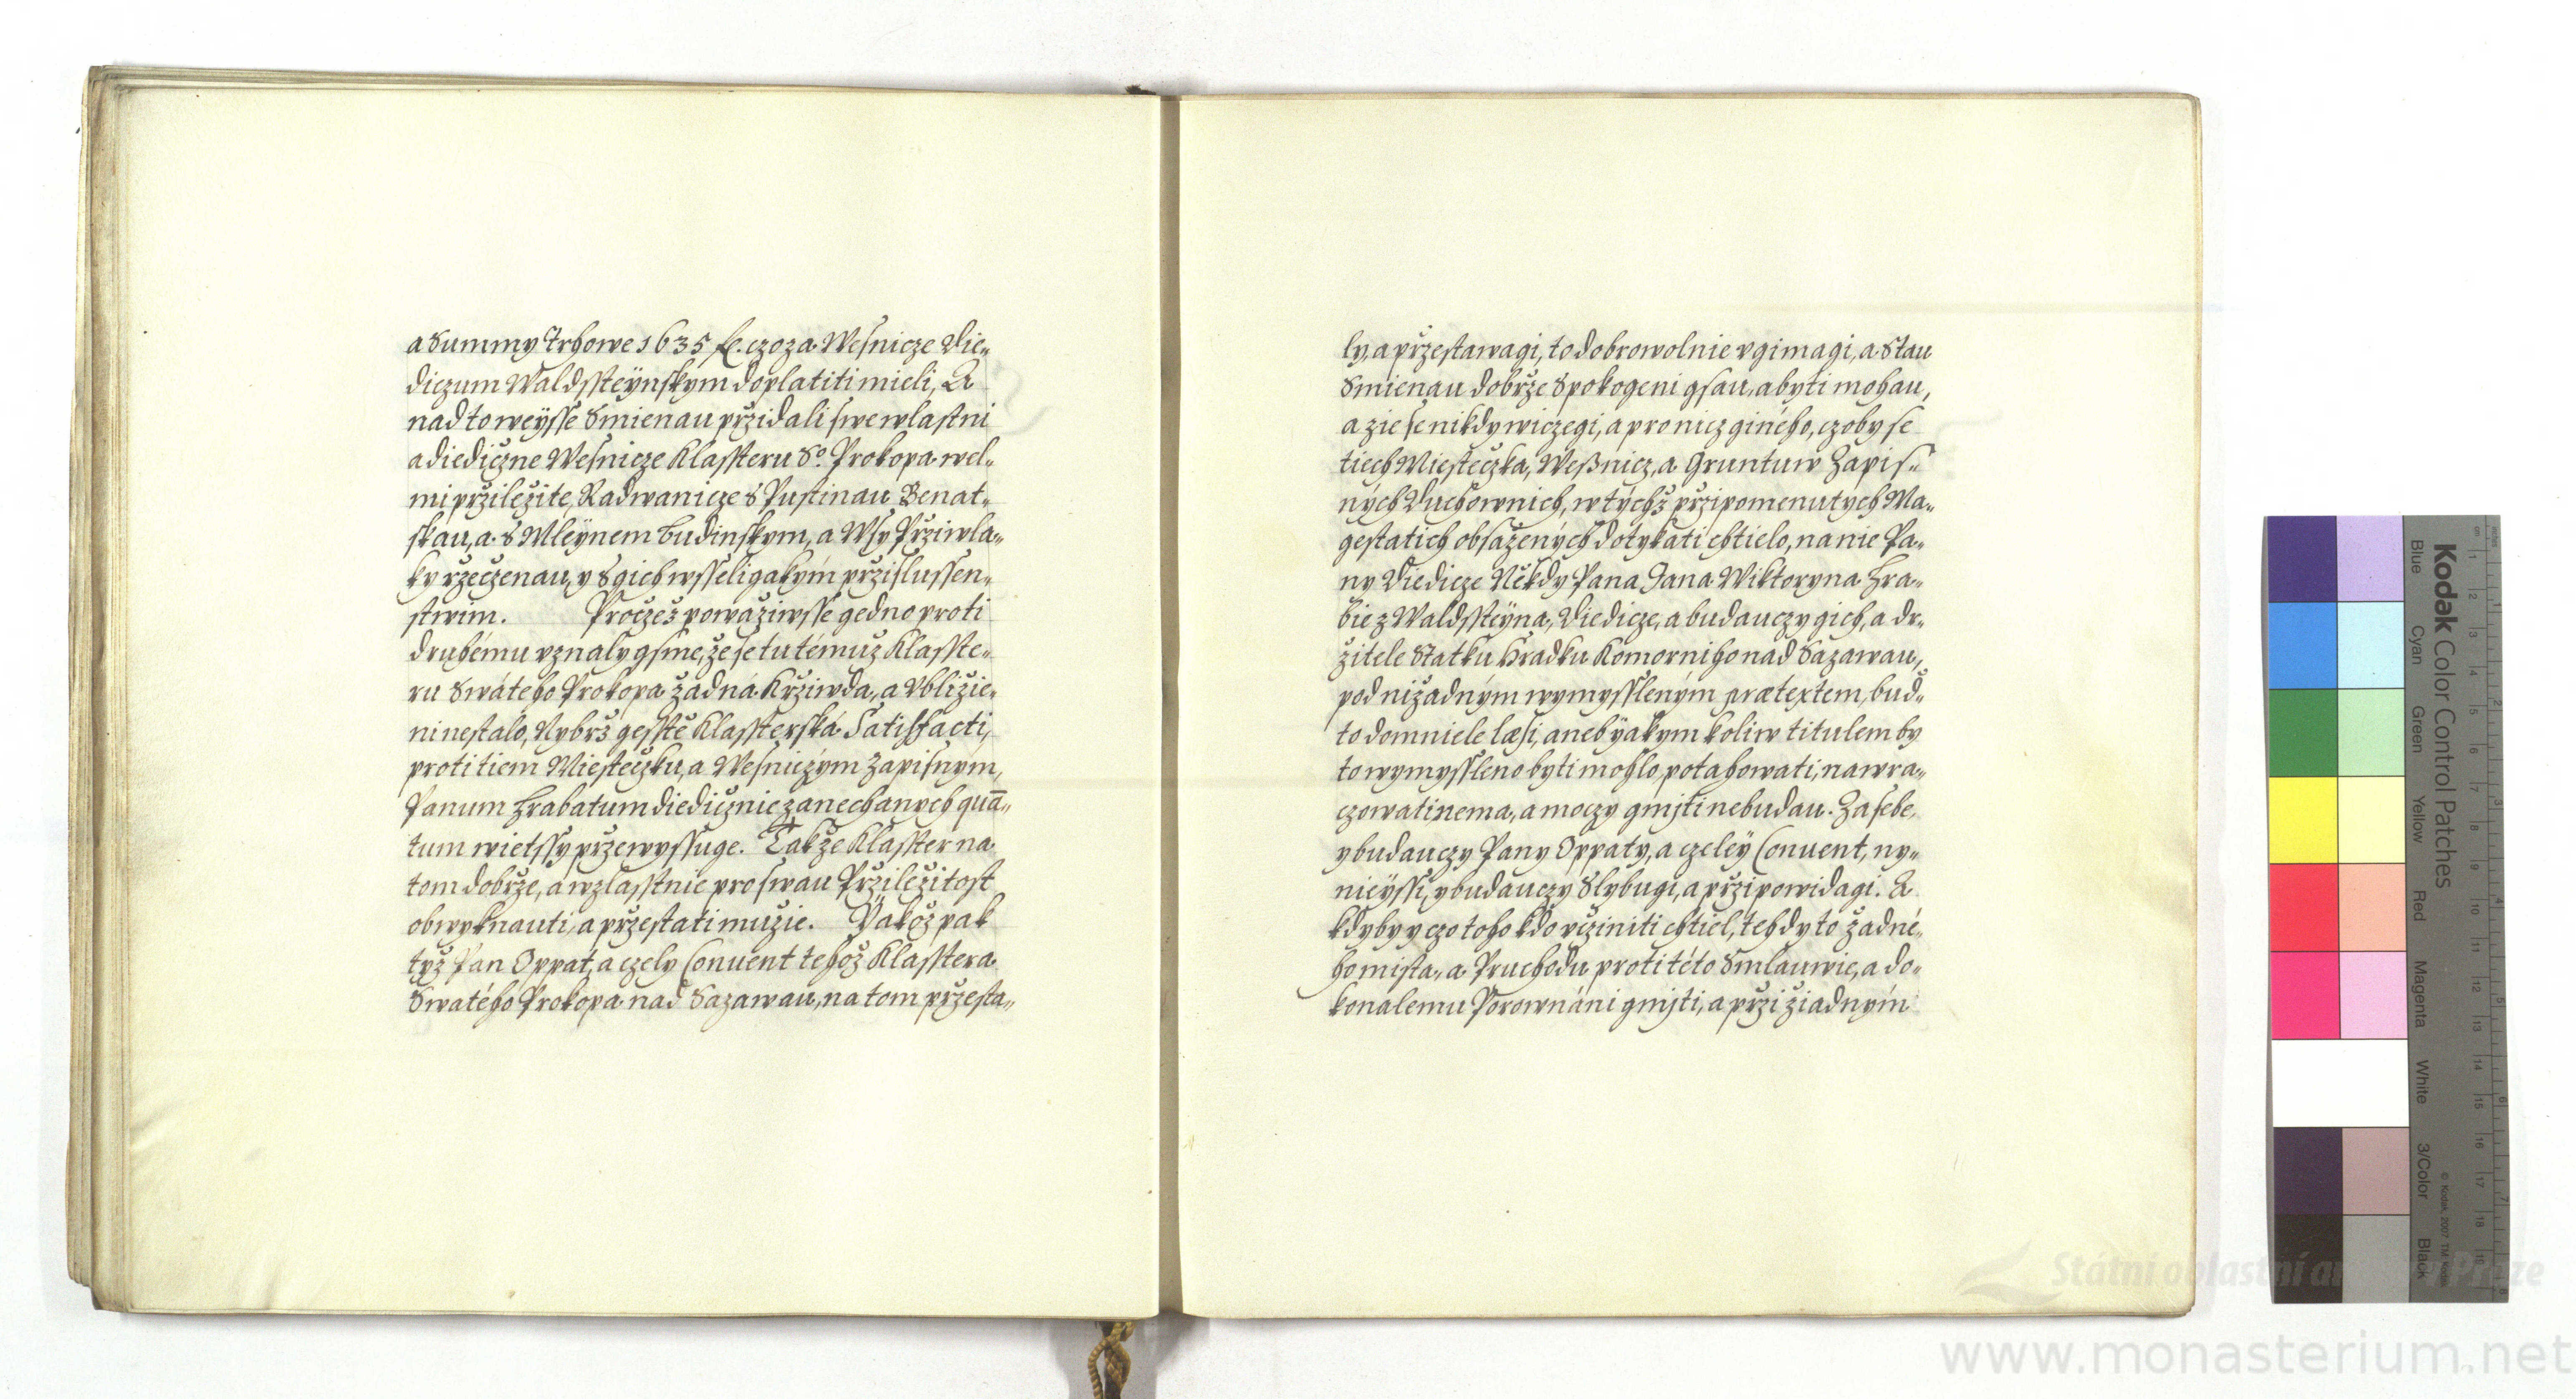 a Summy Trhowe 1635 fl. czo za Wesnicze Die„
diczum Waldssteÿnskym doplatiti mieli, A
nad to weÿsse Smienau przidali swe wlastni
a diediczne Wesnicze Klassteru So. Prokopa wel„
mi prziležite, Radwanicze s Pustinau Benat„
skau, a s Mleÿnem Budinskym, a Wsy Prziwla„
ky rzeczenau, y s gich wsseligakým przislussen„
stwim. Proczež powáziwsse gedno proti
druhému vznaly gsme, že se tu témuž Klasste„
ru Swátého Prokopa žádná Krziwda, a Vbližie„
ni nestalo, Nybrž gesstě Klassterská Satisfacti,
proti tiem Miesteczku, a Wesniczým Zapisným,
Panum Hrabatum diedicznie zanechanych quā„
tum wietssy przewyssuge. Takže Klasster na
tom dobrže, a wzlasstnie pro swau Przileżitost
obwyknauti, a przestati mužie. Yakož pak
tyž Pan Oppat, a czely Conuent tehož Klasstera
Swatého Prokopa nad Sazawau, na tom przesta„
ly, a przestawagi, to dobrowolnie vgimagi, a s tau
Smienau dobrže Spokogeni gsau, a byti mohau,
a zie se nikdy wiczegi, a pro nicz giného, czoby se
tiech Miesteczka, Weßnicz, a Gruntuw Zapis„
ných Duchownich, w týchž przipomenutych Ma„
gestatich obsažených dotykati chtielo, na nie Pa„
ny Diedicze Někdy Pana Jana Wiktoryna Hra„
bie z Waldssteÿna, Diedicze, a budauczy gich, a dr„
žitele Statku Hradku Komorniho nad Sazawau,
pod nižadným wymyssleným prætextem, bud„
to domniele læsi, aneb ÿakym koliw titulem by
to wymyssleno byti mohlo, potahowati, nawra„
czowati nema, a moczy gmjti nebudau. Za sebe,
y budauczy Pany Oppaty, a czeleÿ Conuent, ny„
nieÿssi, y budauczy Slybugi, a przipowidagi. A
kdyby y czo toho kdo vcziniti chtiel, tehdy to žadné„
ho mista, a Pruchodu proti této Smlauwie, a do„
konalemu Porownáni gmjti, a przi žiadným
www.monasterium.net
Státní oblastní archiv v Praze
Kodak Color Control Patches
Blue Cyan Green Yellow Red Magenta White 3/Color Black
© Kodak, 2007 TM: Kodak